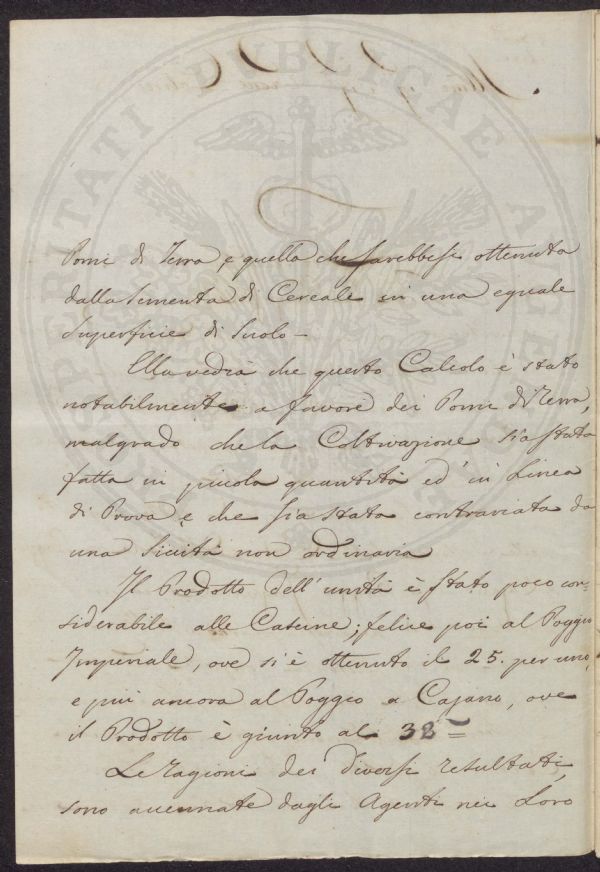 PROSPERITATI PVBLICAE AVGENDAE
Pomi di Terra, e quella che sarebbesi ottenuta
dalla Sementa di Cereale in una eguale
Superficie di Suolo –
Ella vedrà che questo Calcolo è stato
notabilmente a favore dei Pomi di Terra,
malgrado che la Coltivazione sia stata
fatta in piccola quantità ed' in Linea
di Prova, e che sia stata contrariata da
una Siccità non ordinaria
Il Prodotto dell' unità è stato poco con=
siderabile alle Cascine; felice poi al Poggio
Imperiale, ove si è ottenuto il 25. per uno,
e più ancora al Poggio a Cajano, ove
il Prodotto è giunto al 38 =
Le ragioni dei diversi resultati,
sono accennate dagli Agenti nei Loro